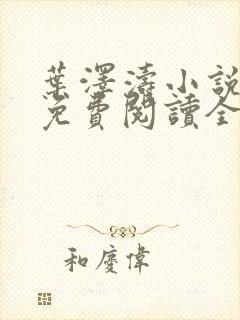 葉澤濤小說
免費閱讀全
和慶偉